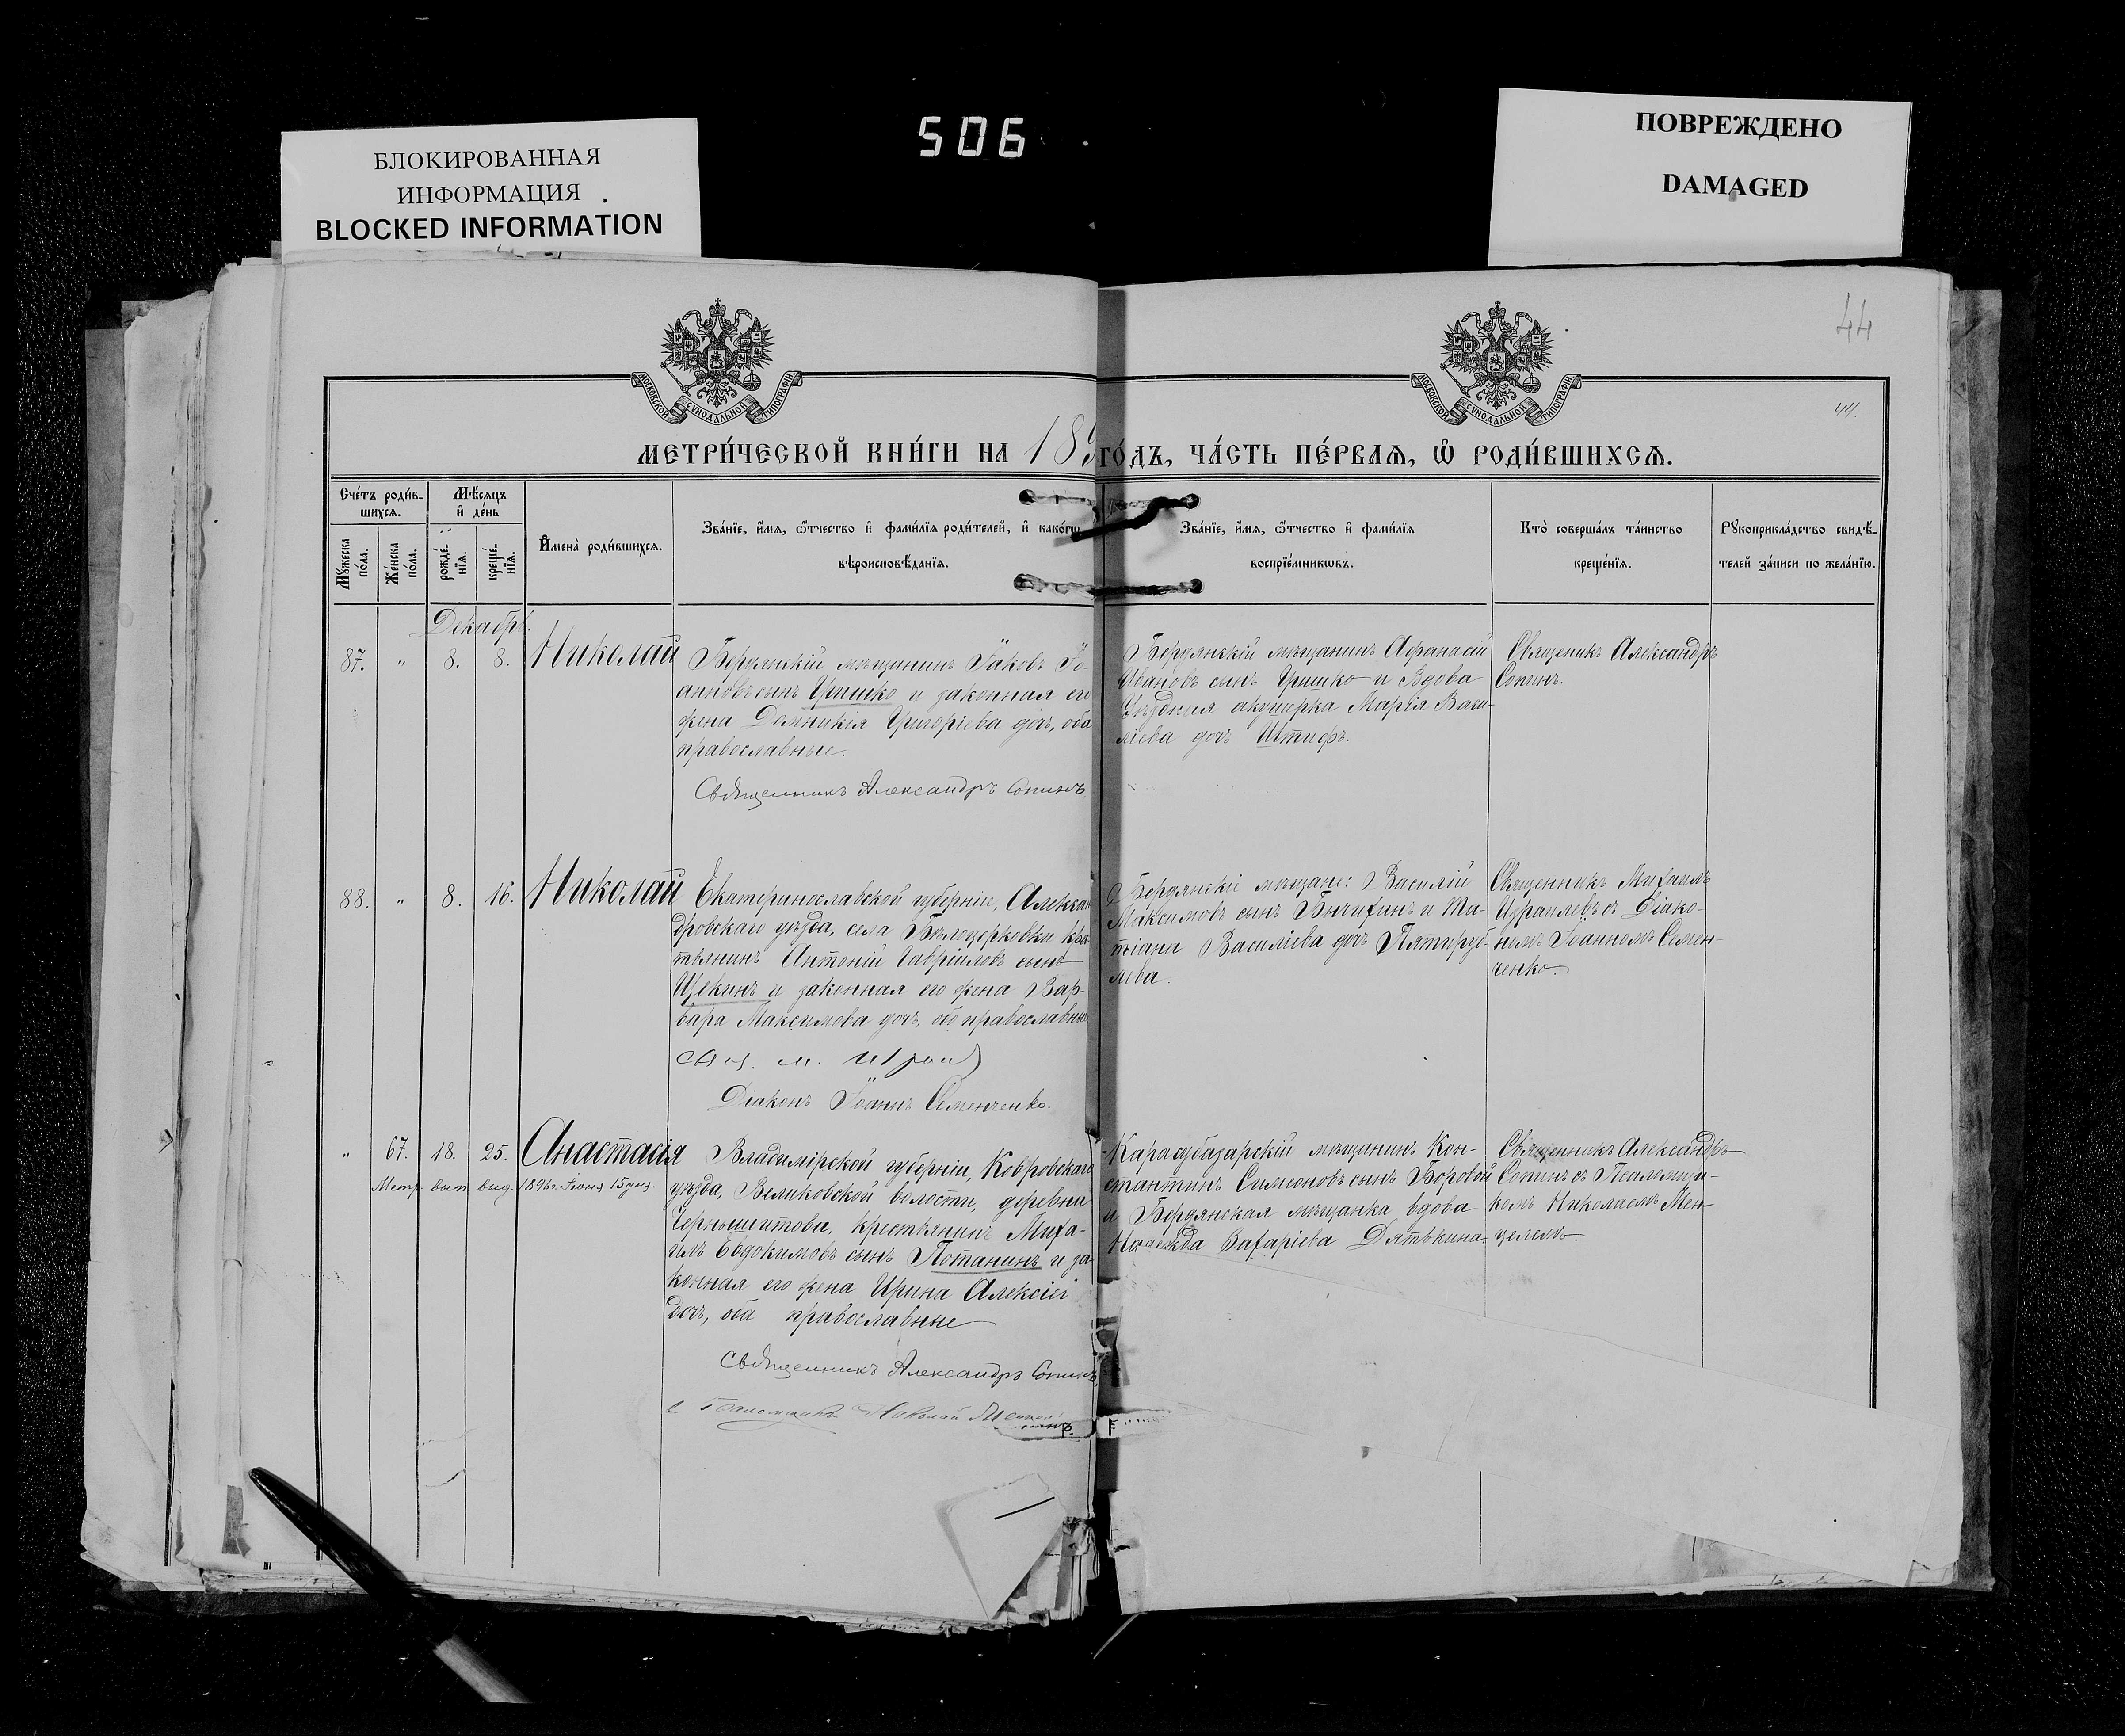 506
БЛОКИРОВАННАЯ
ИНФОРМАЦИЯ
BLOCKED INFORMATION
ПОВРЕЖДЕНО
DAMAGED
44
44.
МОСКОВСКОЙ СѴНОДАЛЬНОЙ ТИПОГРАФІИ
МОСКОВСКОЙ СѴНОДАЛЬНОЙ ТИПОГРАФІИ
МЕТРИ́ЧЕСКОЙ КНИ́ГИ НА 189 ГО́ДЪ, ЧА́СТЬ ПЕ́РВАѦ, Ѡ҆ РОДИ́ВШИХСѦ.
Сче́тъ роди́в-
шихсѧ.
Мѣ́сѧцъ
и҆ де́нь
Мꙋ́жеска
по́ла.
Же́нска
по́ла.
рожде́-
нїѧ.
креще́-
нїѧ.
И҆мена̀ роди́вшихсѧ.
Зва́нїе, и҆́мѧ, ѻ҆́тчество и҆ фами́лїѧ роди́телей, и҆ како́гѡ
вѣроисповѣ́данїѧ.
Зва́нїе, и҆́мѧ, ѻ҆́тчество и҆ фами́лїѧ
воспрїе́мникѡвъ.
Кто̀ соверша́лъ та́инство
креще́нїѧ.
Рꙋкоприкла́дство свидѣ́-
телей за́писи по жела́нїю.
Декабрь.
87. " 8. 8. Николай
Бердянскій мѣщанинъ Іаковъ Іо-
анновъ сынъ Гришко и законная его
жена Домникія Григоріева дочь, оба
православные.
Священникъ Александръ Сопинъ.
Бердянскій мѣщанинъ Афанасій
Ивановъ сынъ Гришко и Вдова
Уѣздная акушерка Марія Васи-
ліева дочь Штифъ.
Священикъ Александръ
Сопинъ.
88. " 8. 16. Николай
Екатеринославской губерніи, Алексан
дровскаго уѣзда, села Бѣлоцерковки крес
тьянинъ Антоній Гавріиловъ сынъ
Щекинъ и законная его жена Вар-
вара Максимова дочь, оба православные
Діаконъ Іоаннъ Семенченко.
Бердянскіе мѣщане: Василій
Максимовъ сынъ Бычихинъ и Та-
тіана Василіева дочь Пятируб-
лева.
Священникъ Михаилъ
Израилевъ съ Діако-
номъ Іоанномъ Семен-
ченко.
" 67. 18. 25. Анастасія
Метр. вып. выд. 1896 г. Іюня 15 дня.
Владимірской губерніи, Ковровскаго
уѣзда, Великовской волости, деревни
крестьянинъ Миха-
илъ Евдокимовъ сынъ Потанинъ и за-
конная его жена Ирина Алексіев
дочь, оба православные
Священникъ Александръ Сопинъ
Псаломщикъ Николай
Карасубазарскій мѣщанинъ Кон-
стантинъ Симеоновъ сынъ Боровой
и Бердянская мѣщанка вдова
Надежда Захаріева Дятькина.
Священникъ Александръ
Сопинъ съ Псаломщи-
комъ Николаемъ Мен-
целемъ